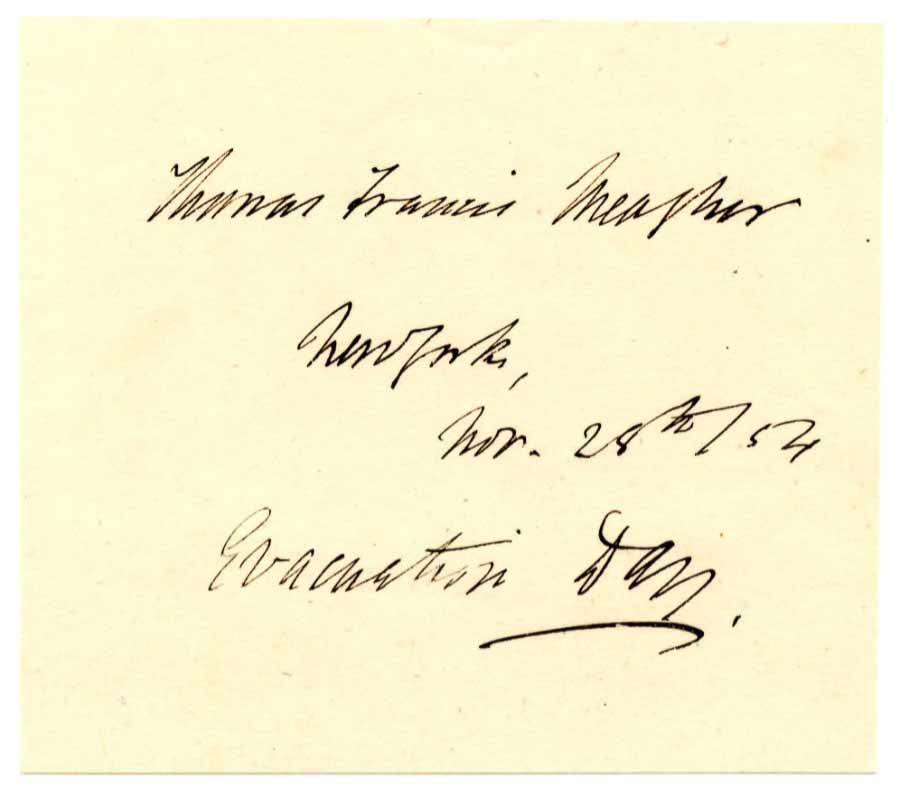 Thomas Francis Meagher
New York,
Nov. 25th/54
Evacuation Day.